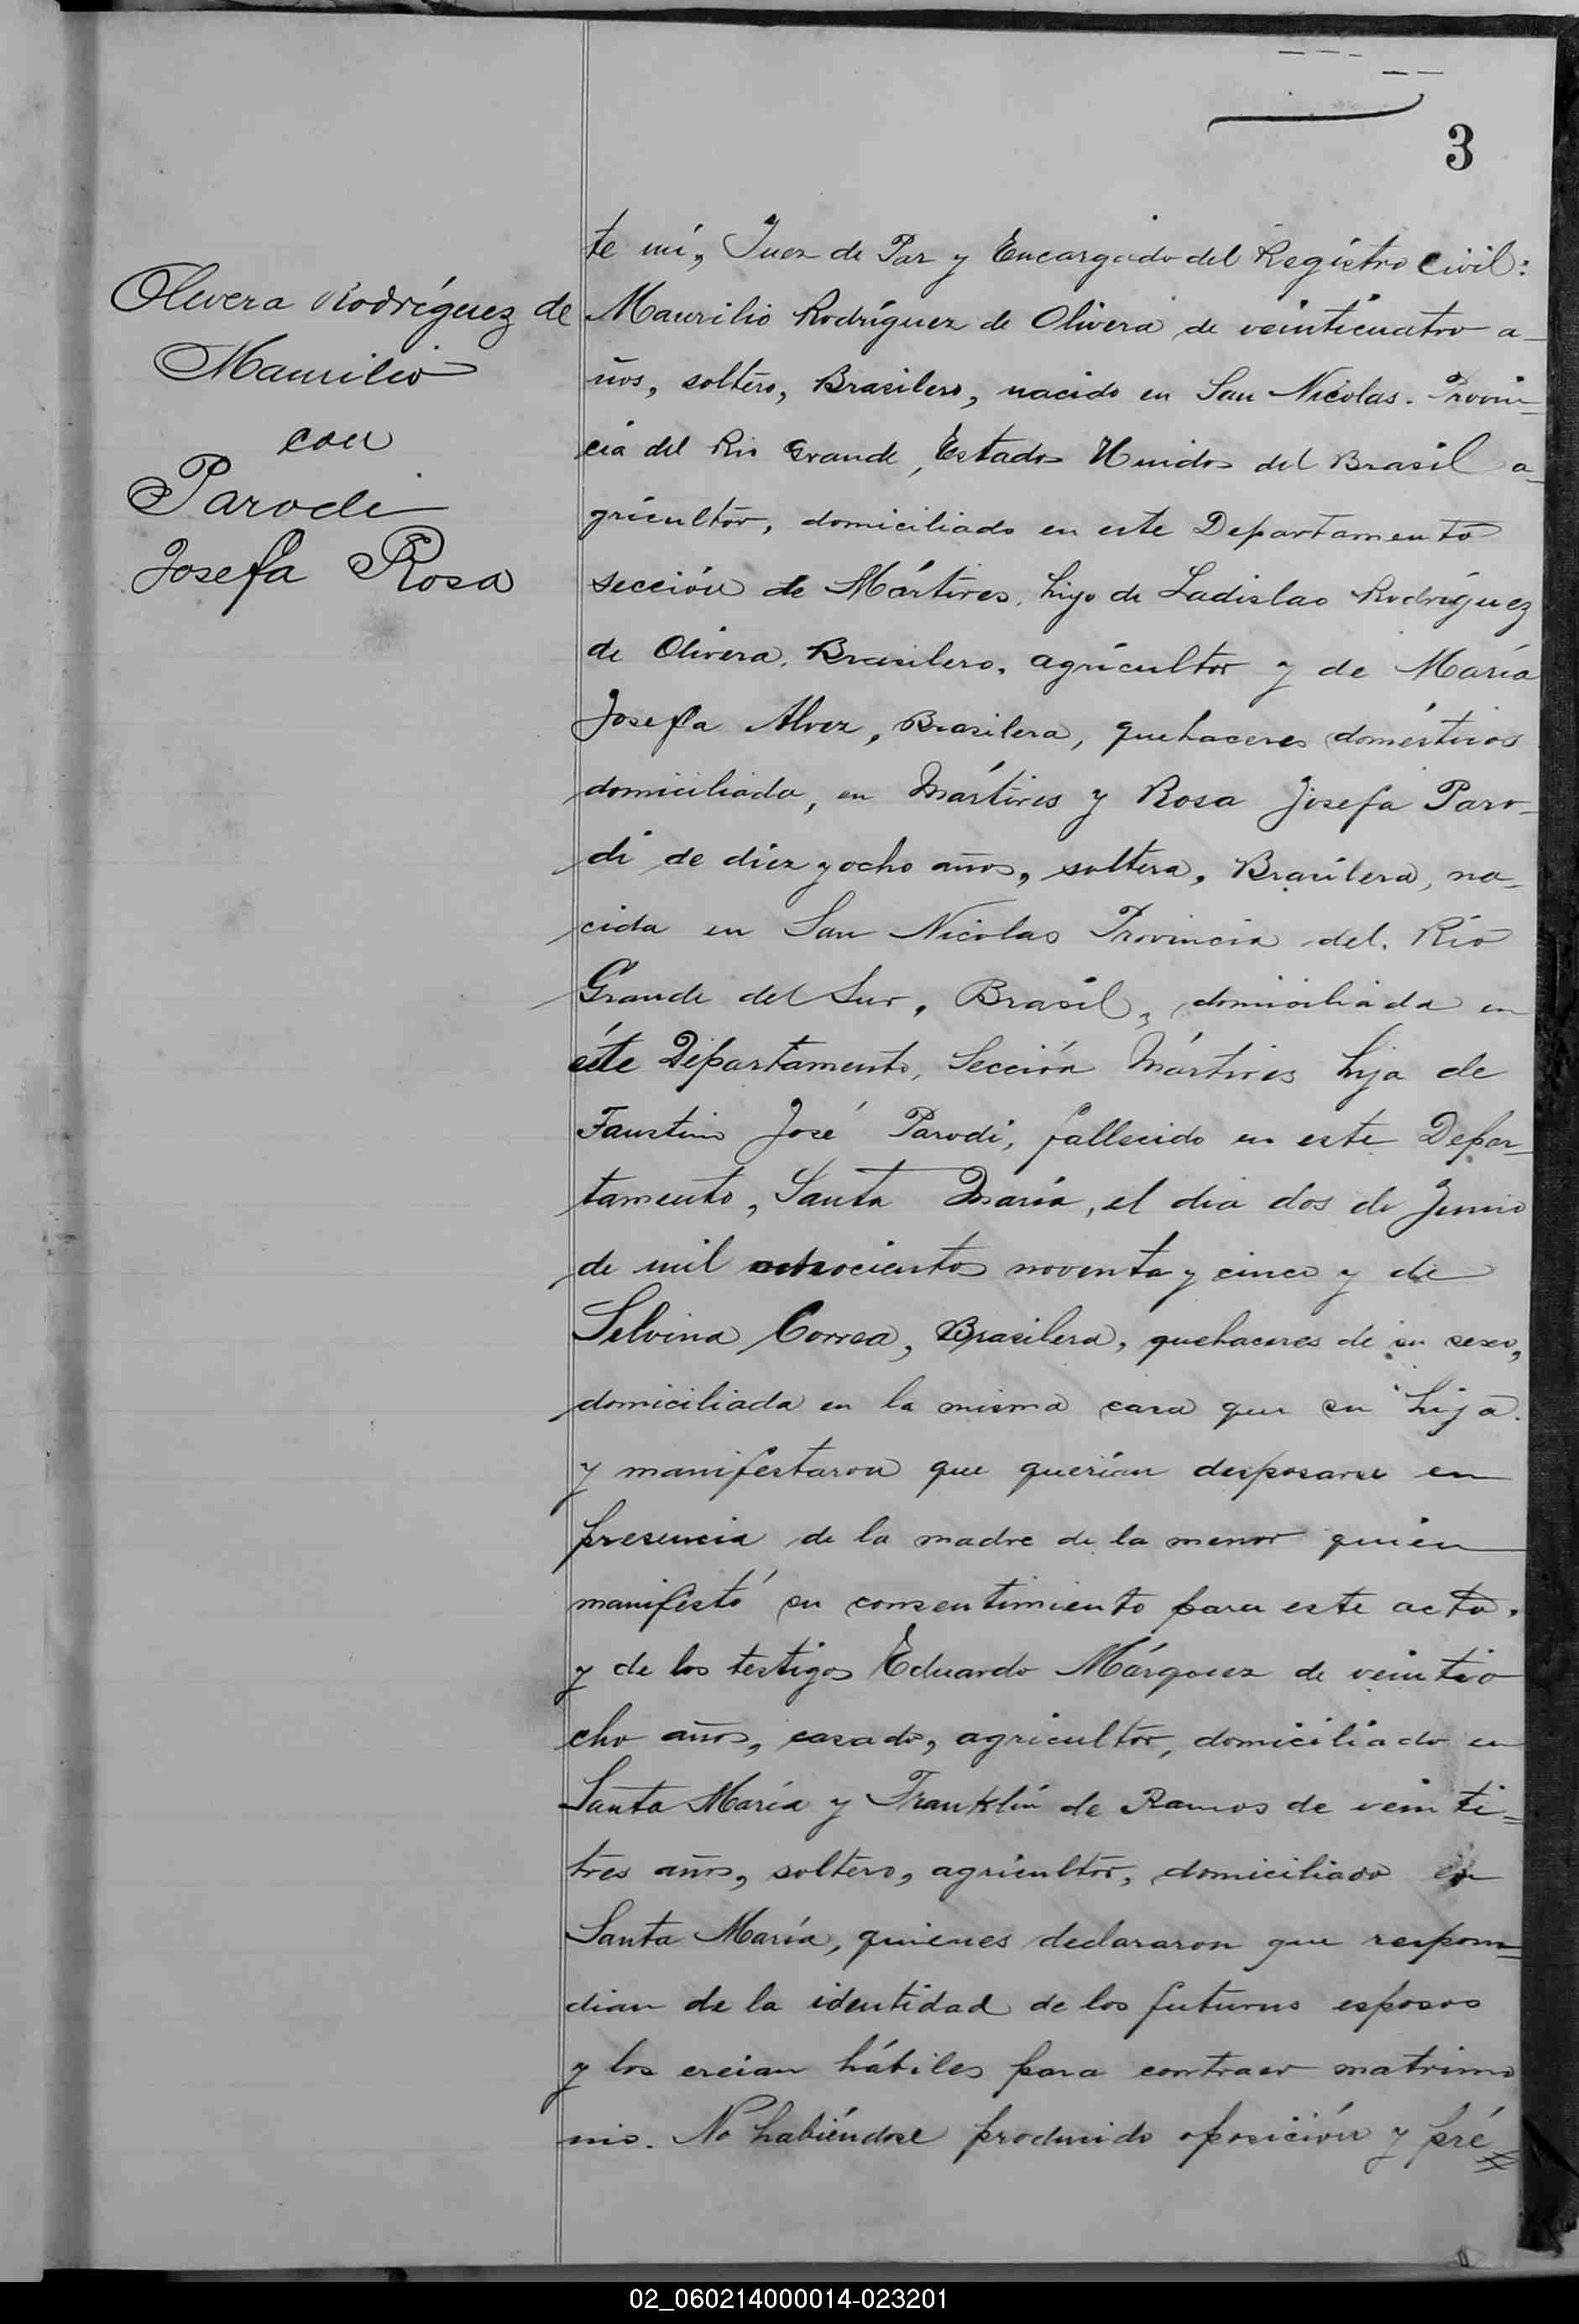 3
Olivera Rodríguez de
Maurilio
con
Parodi
Josefa Rosa
te mí, Juez de Paz y Encargado del Registro Civil:
Maurilio Rodríguez de Olivera de veinticuatro a-
ños, soltero, Brasilero, nacido en San Nicolas. Provin=
cia del Rio Grande, Estados Unidos del Brasil a=
gricultor, domiciliado en este Departamento
sección de Mártires, hijo de Ladislao Rodríguez
de Olivera, Brasilero, agricultor y de María
Josefa Alvez, Brasilera, quehaceres domésticos
domiciliada, en Mártires y Rosa Josefa Paro-
di de diez y ocho años, soltera, Brasilera, na-
cida en San Nicolas Provincia del Rio
Grande del Sur, Brasil, domiciliada en
éste Departamento, Sección Mártires hija de
Faustino José Parodi, fallecido en este Depar-
tamento, Santa María, el dia dos de Junio
de mil ochocientos noventa y cinco y de
Selvina Correa, Brasilera, quehaceres de su sexo,
domiciliada en la misma casa que su hija.
y manifestaron que querían desposarse en
presencia de la madre de la menor quien
manifestó su consentimiento para este acto,
y de los testigos Eduardo Márquez de veintio
cho años, casado, agricultor, domiciliado en
Santa María y Franklin de Ramos de veinti=
tres años, soltero, agricultor, domiciliado en
Santa María, quienes declararon que respon=
dian de la identidad de los futuros esposos
y los creian hábiles para contraer matrimo
nio. No habiéndose producido oposición y pré
02_060214000014-023201